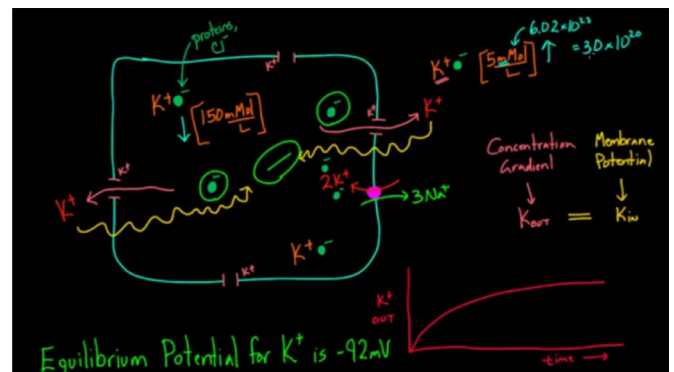 proteins,
Cl⁻
K⁺
K⁺ ⁻
[150 mMol/L]
K⁺
K⁺
K⁺
⁻
K⁺
⁻
K⁺
⁻
−
⁻
2K⁺
⁻
3Na⁺
K⁺ ⁻
K⁺
6.02×10²³
K⁺ ⁻ [5 mMol/L] ↑ = 3.0×10²⁰
Concentration Gradient
Membrane Potential
K OUT = K IN
K⁺
OUT
time →
Equilibrium Potential for K⁺ is -92mV